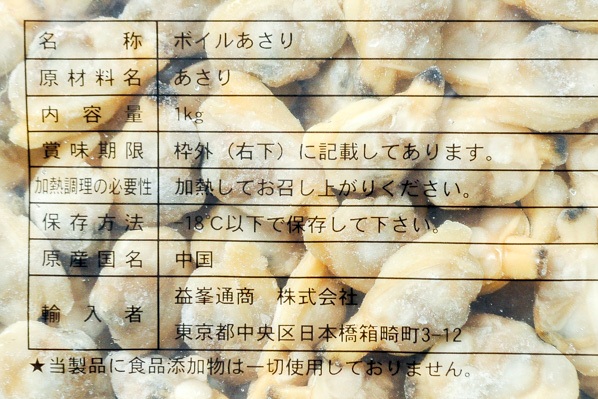 名称 ボイルあさり
原材料名 あさり
内容量 1kg
賞味期限 枠外（右下）に記載してあります。
加熱調理の必要性 加熱してお召し上がりください。
保存方法 -18℃以下で保存して下さい。
原産国名 中国
輸入者 益峯通商 株式会社
東京都中央区日本橋箱崎町3-12
★当製品に食品添加物は一切使用しておりません。